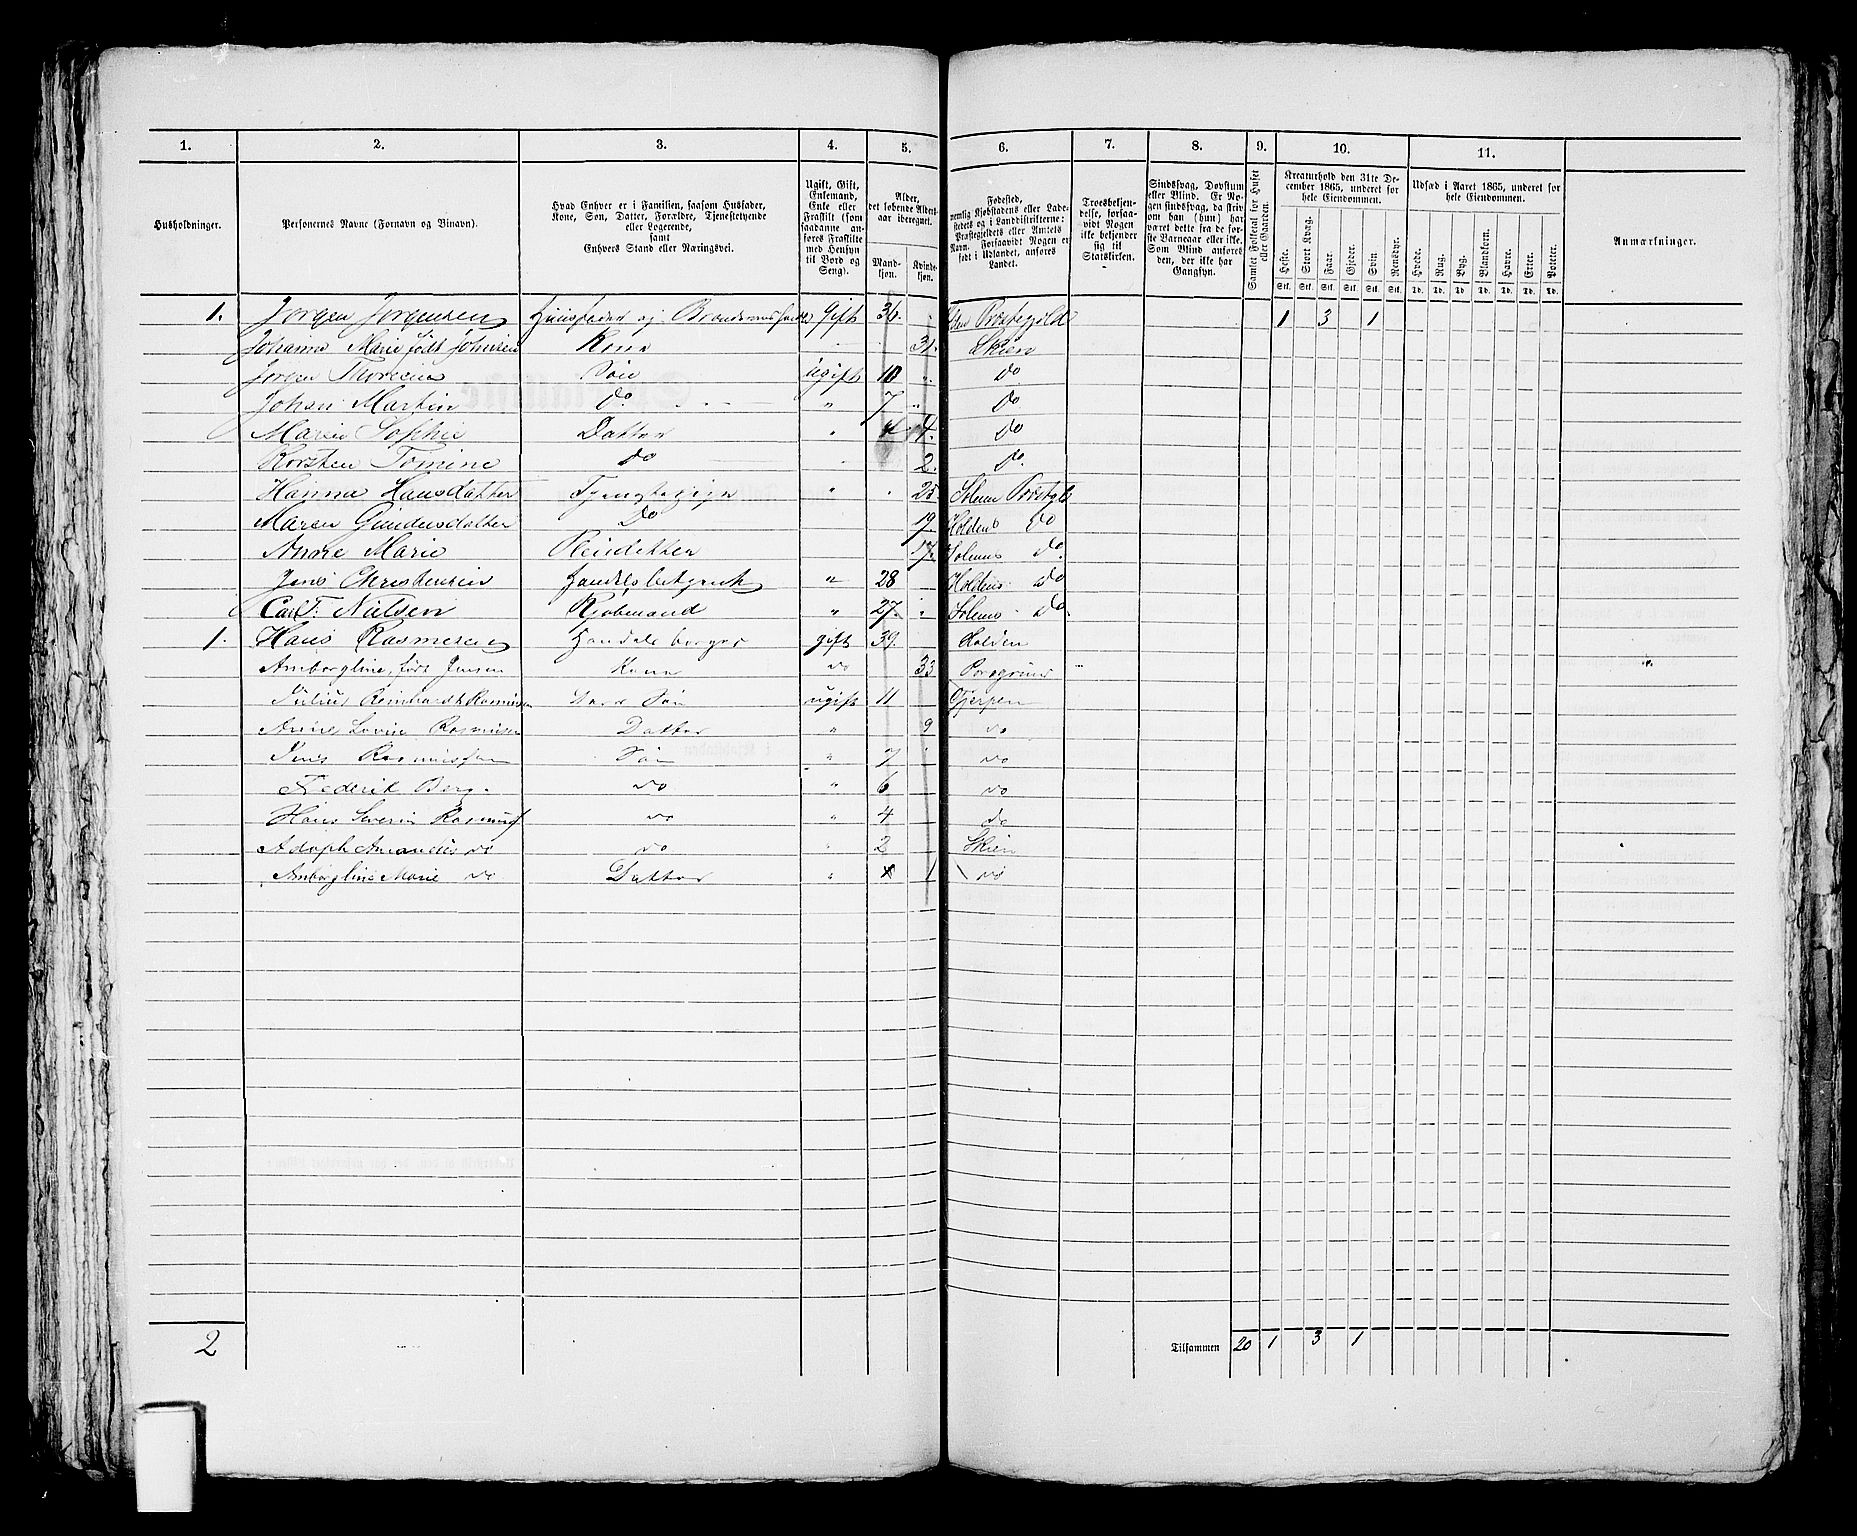 1. 2. 3. 4. 5. 6. 7. 8. 9. 10. 11.
Husholdninger.
Personernes Navne (Fornavn og Binavn).
Hvad Enhver er i Familien, saasom Husfader,
Kone, Søn, Datter, Forældre, Tjenestetyende
eller Logerende,
samt
Enhvers Stand eller Næringsvei.
Ugift, Gift,
Enkemand,
Enke eller
Fraskilt (som
saadanne an-
føres Fraskilte
med Hensyn
til Bord og
Seng).
Alder,
det løbende Alders-
aar iberegnet.
Mand-
kjøn.
Kvinde-
kjøn.
Fødested,
nemlig Kjøbstadens eller Lade-
stedets og i Landdistrikterne:
Præstegjeldets eller Amtets
Navn. Forsaavidt Nogen er
født i Udlandet, anføres
Landet.
Troesbekjen-
delse, forsaa-
vidt Nogen
ikke bekjender
sig til
Statskirken.
Sindssvag, Døvstum
eller Blind. Er No-
gen sindssvag, da skriv
om han (hun) har
været dette fra de før-
ste Barneaar eller ikke.
Som Blind anføres
den, der ikke har
Gangsyn.
Samlet Folketal for Huset
eller Gaarden.
Kreaturhold den 31te De-
cember 1865, underet for
hele Eiendommen.
Heste. Stort Kvæg. Faar. Gjeder. Svin. Rensdyr.
Stk. Stk. Stk. Stk. Stk. Stk.
Udsæd i Aaret 1865, underet for
hele Eiendommen.
Hvede. Rug. Byg. Blandkorn. Havre. Erter. Poteter.
Td. Td. Td. Td. Td. Td. Td.
Anmærkninger.
1. Jørgen Jørgensen Huusfader og Gift 36. Præstegjeld 1 3 1
Johanne Marie født Johnsen Kone 31. Skien
Jørgen Søn ugift 10 do
Johan Martin do. " 7 do
Maren Sophie Datter " 4. do
Tomine do 2. do.
Hanna Hansdatter Tjenestepige " 25 Solum
Maren Gundersdatter Do 19 Holdens do
Anne Marie Pleiedatter 17. Solums do.
Jens Christensen Handelsbetjent " 28 Holdens do
Carl F. Nielsen Kjøbmand " 27. Solums do.
1. Hans Rasmusen Handelsborger gift 39. Holden
Amborgline, født Jensen Kone do 33 Porsgrund
Julius Reinhardt Rasmusen Søn ugift 11 Gjerpen
Anne Lovise Rasmusen Datter " 9 do
Jens Rasmussen Søn " 7 do
Frederik Berg do " 6 do
Hans Severin Rasmus do " 4 do
Adolph Amandus do do " 2 Skien
Amborgline Marie do Datter " 1 do
2 Tilsammen 20 1 3 1